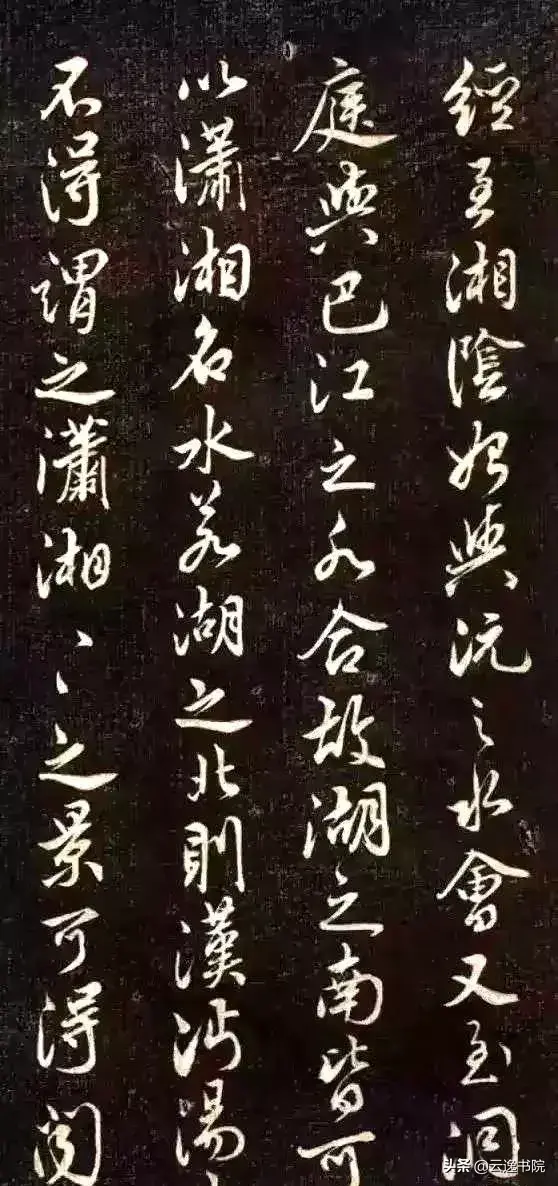 經至湘陰始與沅之水會又至洞
庭與巴江之水合故湖之南皆可
以瀟湘名水若湖之北則漢沔湯
不得謂之瀟湘〻之景可得聞
头条 @云逸书院